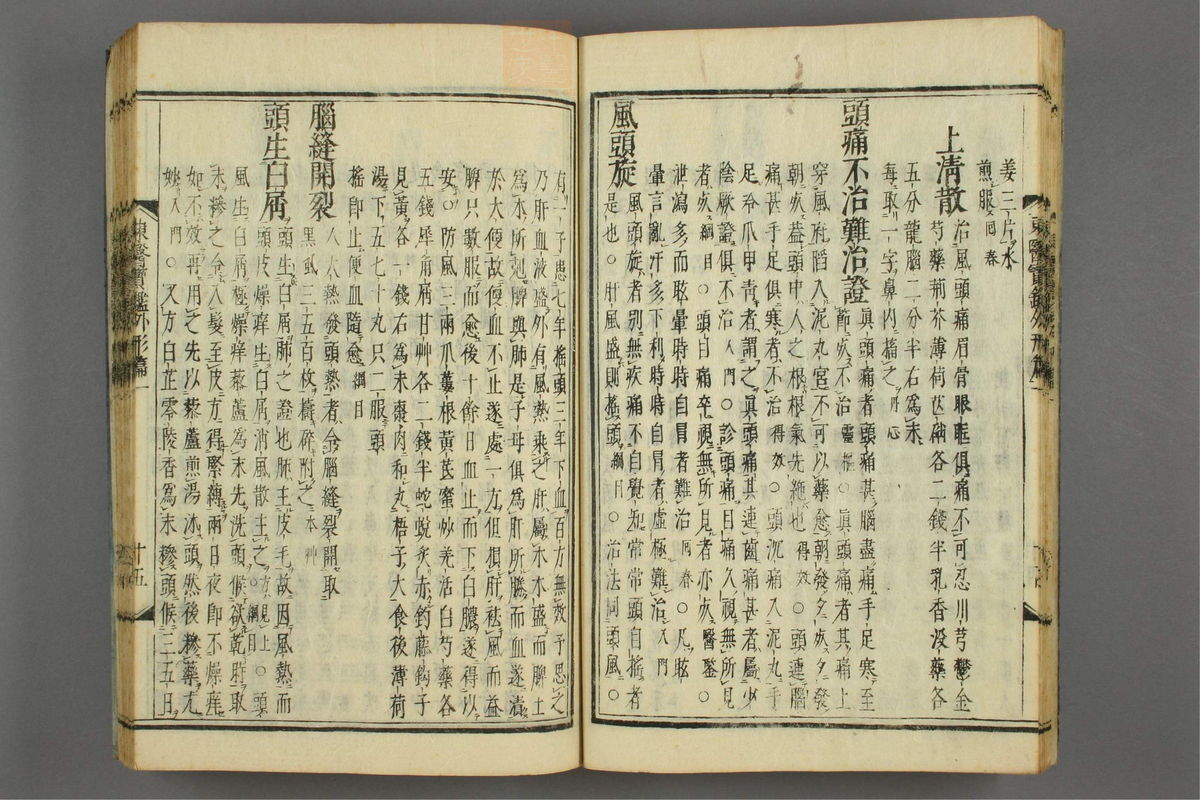 姜三片水
煎服 回春
上淸散 治風頭痛眉骨眼眶俱痛不可忍川芎鬱金
芍藥荊芥薄荷芒硝各二錢半乳香沒藥各
五分龍腦二分半右爲末
每取一字鼻內㗜之 丹心
頭痛不治難治證 眞頭痛者頭痛甚腦盡痛手足寒至
節死不治 靈樞 ○眞頭痛者其痛上
穿風府陷入泥丸宮不可以藥愈朝發夕死夕發
朝死盖頭中人之根根氣先絶也 得效 ○頭連腦
痛甚手足俱寒者不治 得效 ○頭沉痛入泥丸手
足冷爪甲靑者謂之眞頭痛其連齒痛甚者屬少
陰厥證俱不治 入門 ○診頭痛目痛久視無所見
者死 綱目 ○頭目痛卒視無所見者亦死 醫鑒 ○
泄瀉多而眩暈時時自冒者難治 回春 ○凡眩
暈言亂汗多下利時時自冒者虛極難治 入門
風頭旋 風頭旋者別無疾痛不自覺知常常頭自搖者
是也○肝風盛則搖頭 綱目 ○治法同頭風○
有一子患七年搖頭三年下血百方無效予思之
乃肝血液盛外有風熱乘之肝屬木木盛而脾土
爲木所剋脾與肺是子母俱爲肝所勝而血遂漬
於大便故便血不止遂處一方但損肝祛風而益
脾只數服而愈後十餘日血止而下白膿遂得以
安○防風三兩瓜蔞根黃芪蜜炒羌活白芍藥各
五錢犀角屑甘艸各二錢半蛇蛻炙赤鉤藤鈎子
麻黃各一錢右爲末棗肉和丸梧子大食後薄荷
湯下五七十丸只二服頭
搖卽止便血隨愈 綱目
腦縫開裂 人大熱發頭熱者令腦縫裂開取
黑虱三五百枚擣碎附之 本艸
頭生白屑 頭生白屑肺之證也肺主皮毛故因風熱而
頭皮燥痒生白屑消風散主之 方見上 ○ 綱目 ○頭
風生白屑極燥痒藜蘆爲末先洗頭候欲乾時取
末糝之令入髮至皮方得緊縛兩日夜卽不燥痒
如不效再用之先以藜蘆煎湯沐頭然後糝藥尤
妙 入門 ○又方白芷零陵香爲末糝頭候三五日
東醫寶鑑外形篇一
十五